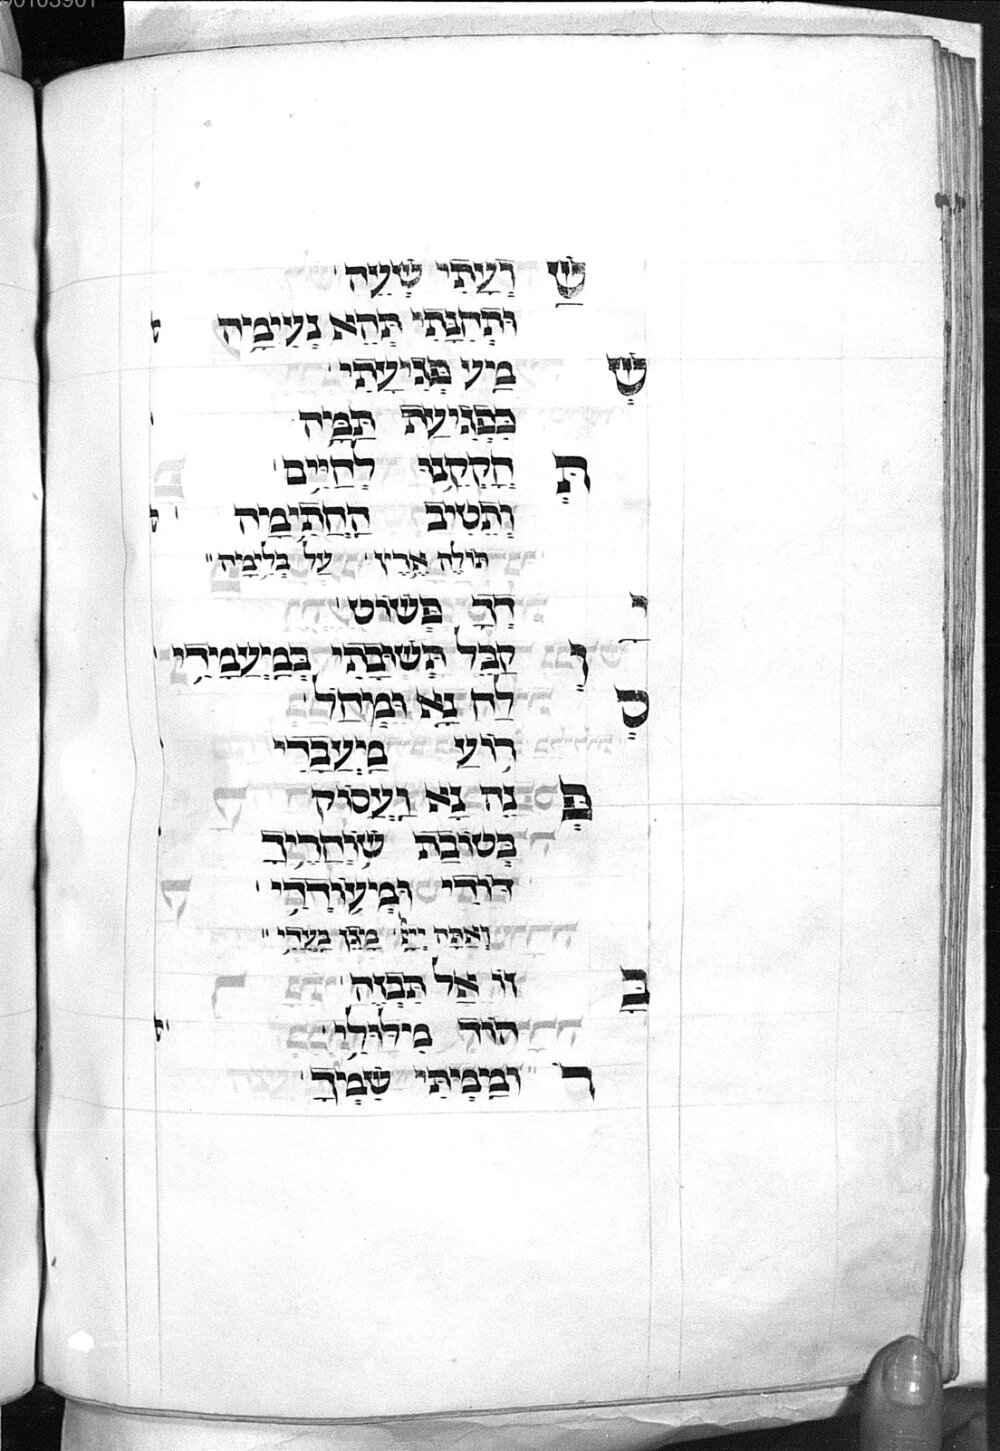 שַׁ וְעָתִי שְׁעֵה
וּתְחִנָּתִי תְּהֵא נְעִימָה
שְׁ מַע פְּגִיעָתִי
כִּפְגִיעַת תַּמָּה
תְּ חָקְקֵנוּ לְחַיִּים
וְתֵטִיב הַחֲתִימָה
תּוֹלֶה אֶרֶץ עַל בְּלִימָה
יָ דְךָ פְּשׁוֹט
וְ קַבֵּל תְּשׁוּבָתִי בְּמַעֲמָדִי
סְ לַח נָא וּמְחַל
רוֹעַ מַעֲבָדִי
פְּ נֵה נָא וַעֲסוֹק
בְּטוֹבַת שׁוֹחֲרֶיךָ
דּוֹדִי וּמְעוֹדְדִי
וְאַתָּה יְיָ מָגֵן בַּעֲדִי
בִּ זּוּי אַל תִּבְזֶה
הוֹדְ מִילּוּלִי
ר וּמֵמִיתִי שִׁמְךָ